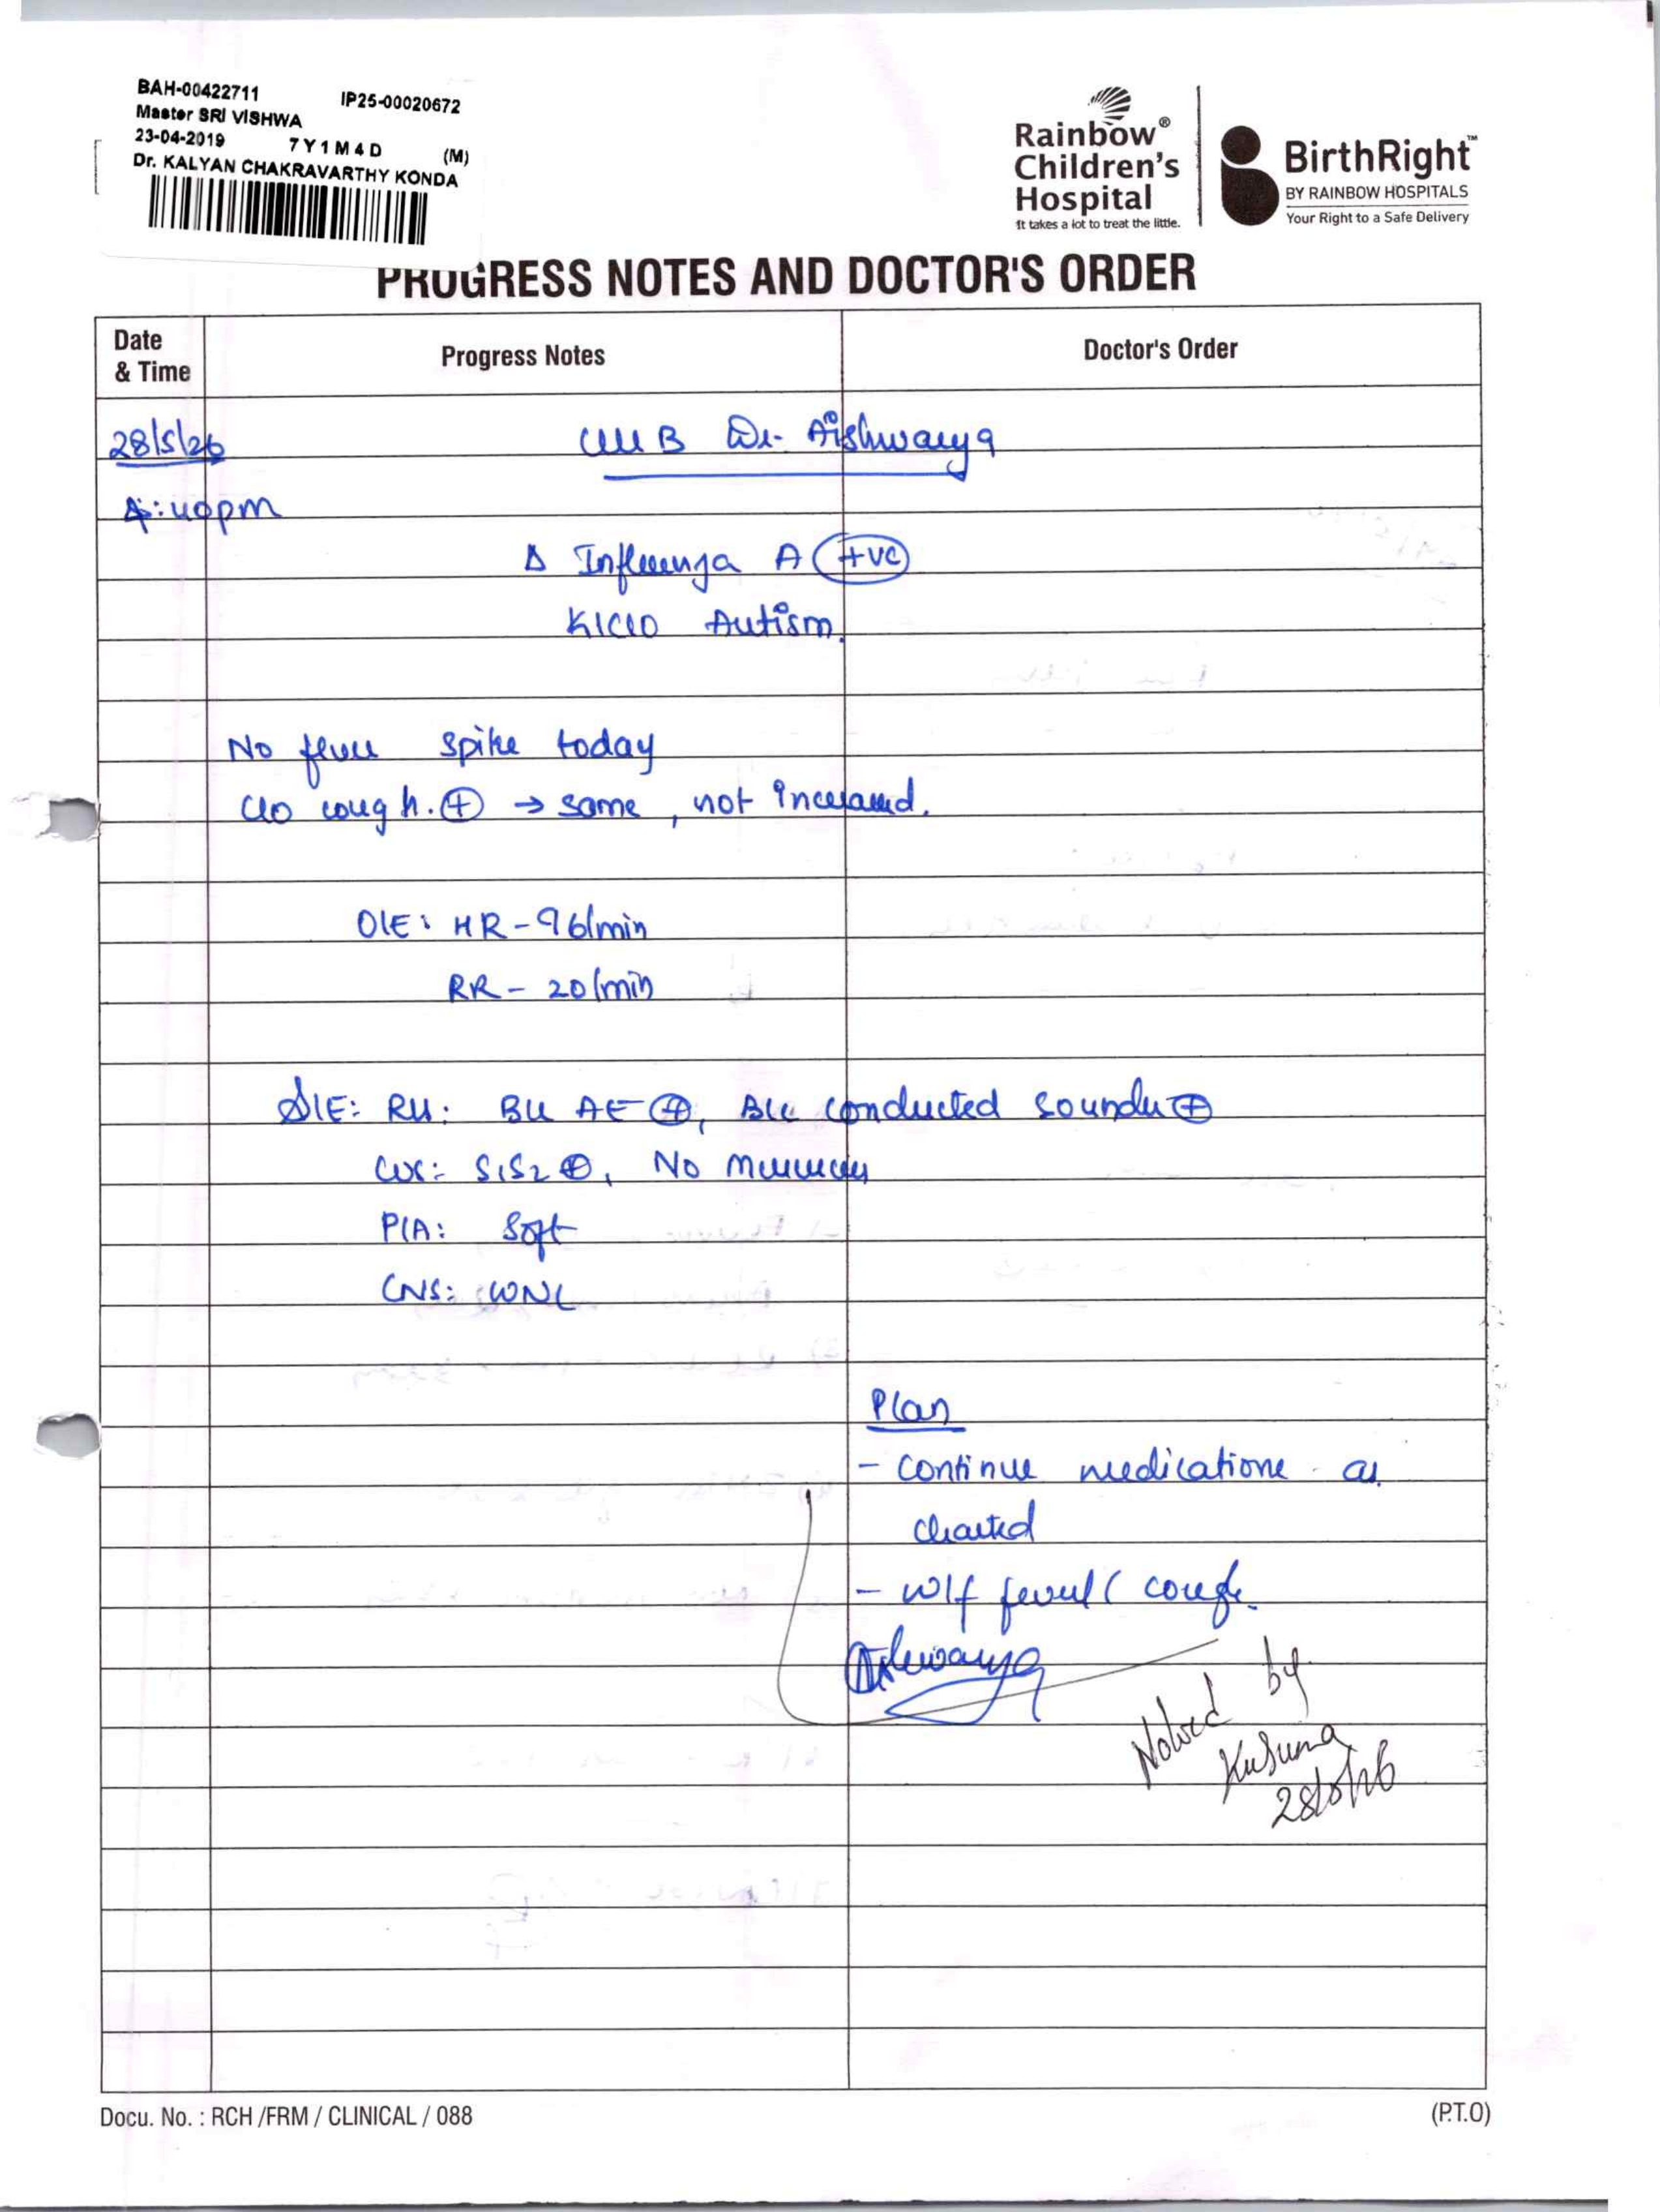 BAH-00422711 IP25-00020672
Master SRI VISHWA
23-04-2019 7Y1M4D (M)
Dr. KALYAN CHAKRAVARTHY KONDA
Rainbow®
Children's
Hospital
It takes a lot to treat the little.
BirthRight™
BY RAINBOW HOSPITALS
Your Right to a Safe Delivery
PROGRESS NOTES AND DOCTOR'S ORDER
Date
& Time
Progress Notes
Doctor's Order
28/5/26
B Dr. Aishwarya
4:40pm
Δ Influenza A +ve
K/C/O Autism.
No fever spike today
C/o cough. ⊕ → same, not increased.
O/E: HR - 96/min
RR - 20/min
S/E: RS: B/L AE ⊕, B/L conducted sounds ⊕
CVS: S1S2 ⊕, No murmur
P/A: Soft
CNS: WNL
Plan
- continue medications as
charted
- w/f fever/cough.
Aishwarya
Noted by
Kusuma
28/5/26
Docu. No. : RCH /FRM / CLINICAL / 088
(P.T.O)